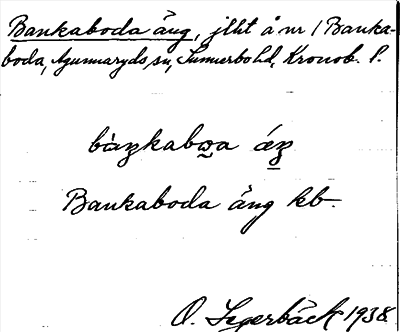 Bankaboda äng, jlht å nr 1 Banka-
boda, Agunnaryds sn, Sunnerbo hd, Kronob. l.
bàŋkabωa ǽŋ
Bankaboda äng kb.
O. Segerbäck 1938